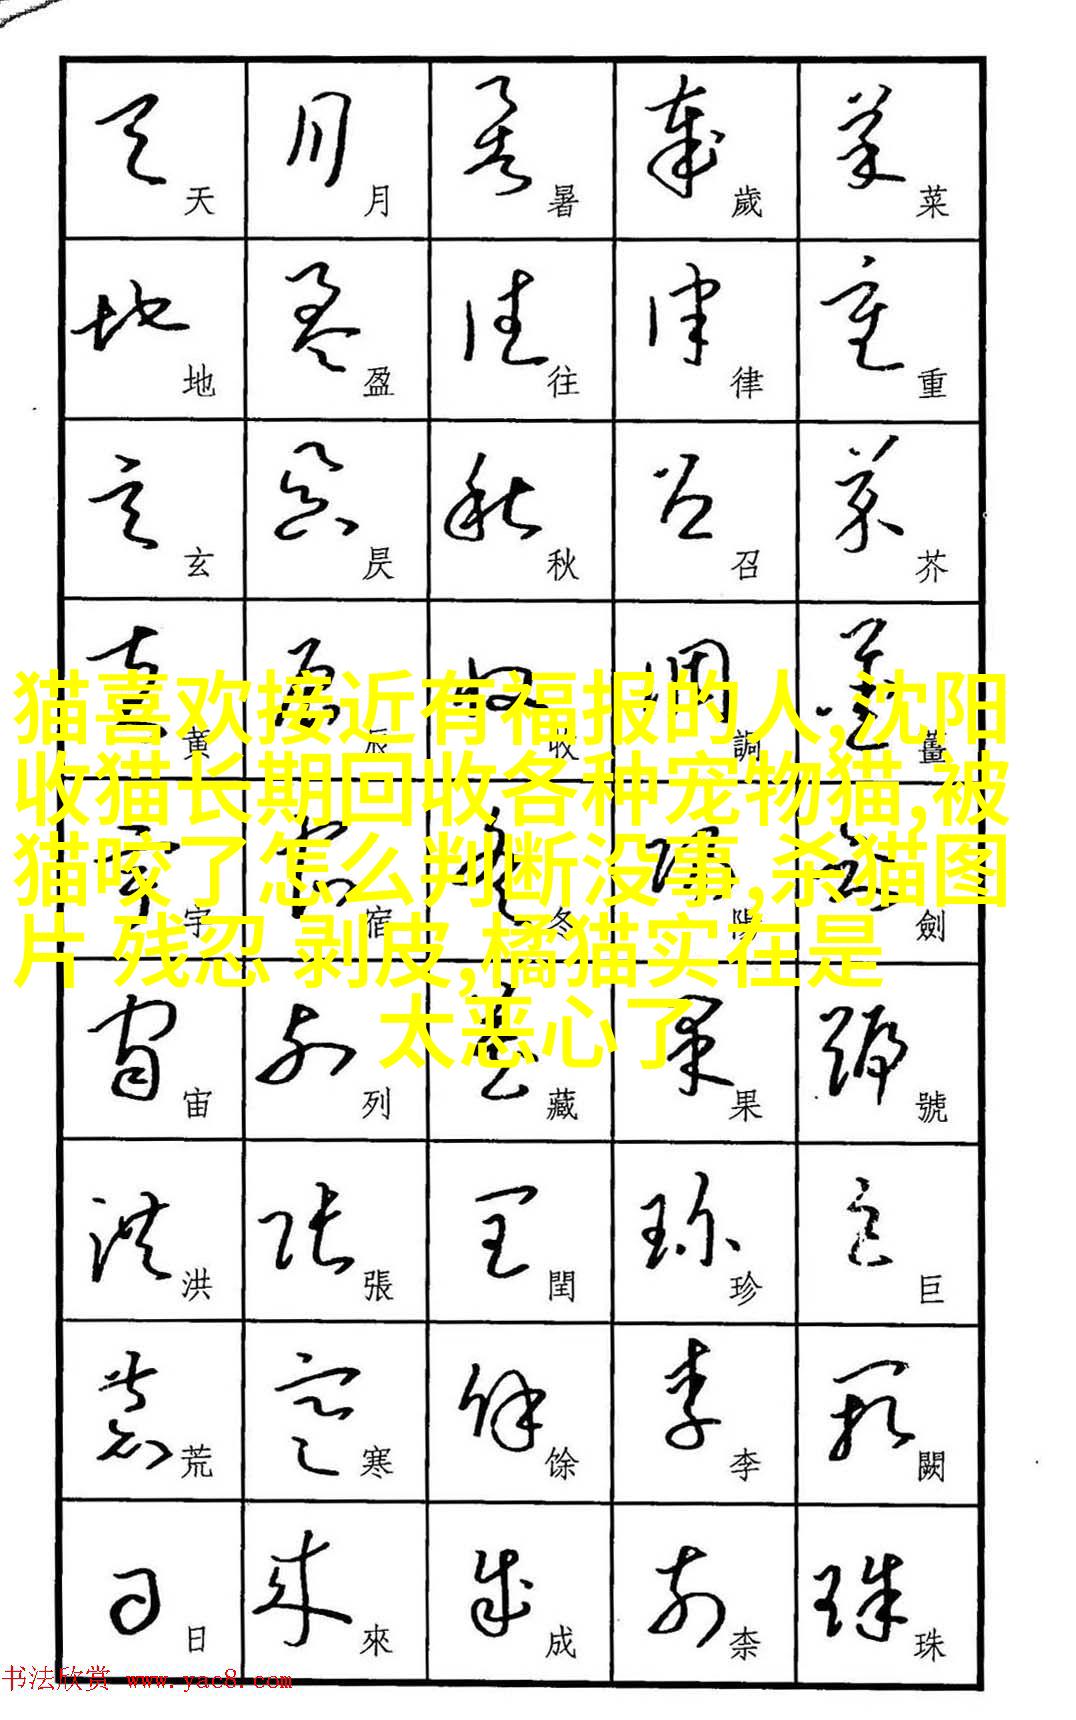 天 月 暑 歲 菜
地 盈 往 律 重
玄 昃 秋 召 芥
黄 辰 收 調 薑
猫喜欢接近有福报的人,沈阳
收猫长期回收各种宠物猫,被
猫咬了怎么判断没事,杀猫图
片 残忍 剥皮,橘猫实在是
太恶心了
宇 宿 冬 陽 劍
宙 列 藏 果 號
洪 張 閏 珍 巨
荒 寒 馀 李 闕
日 來 成 柰 珠
书法欣赏 www.yac8.com